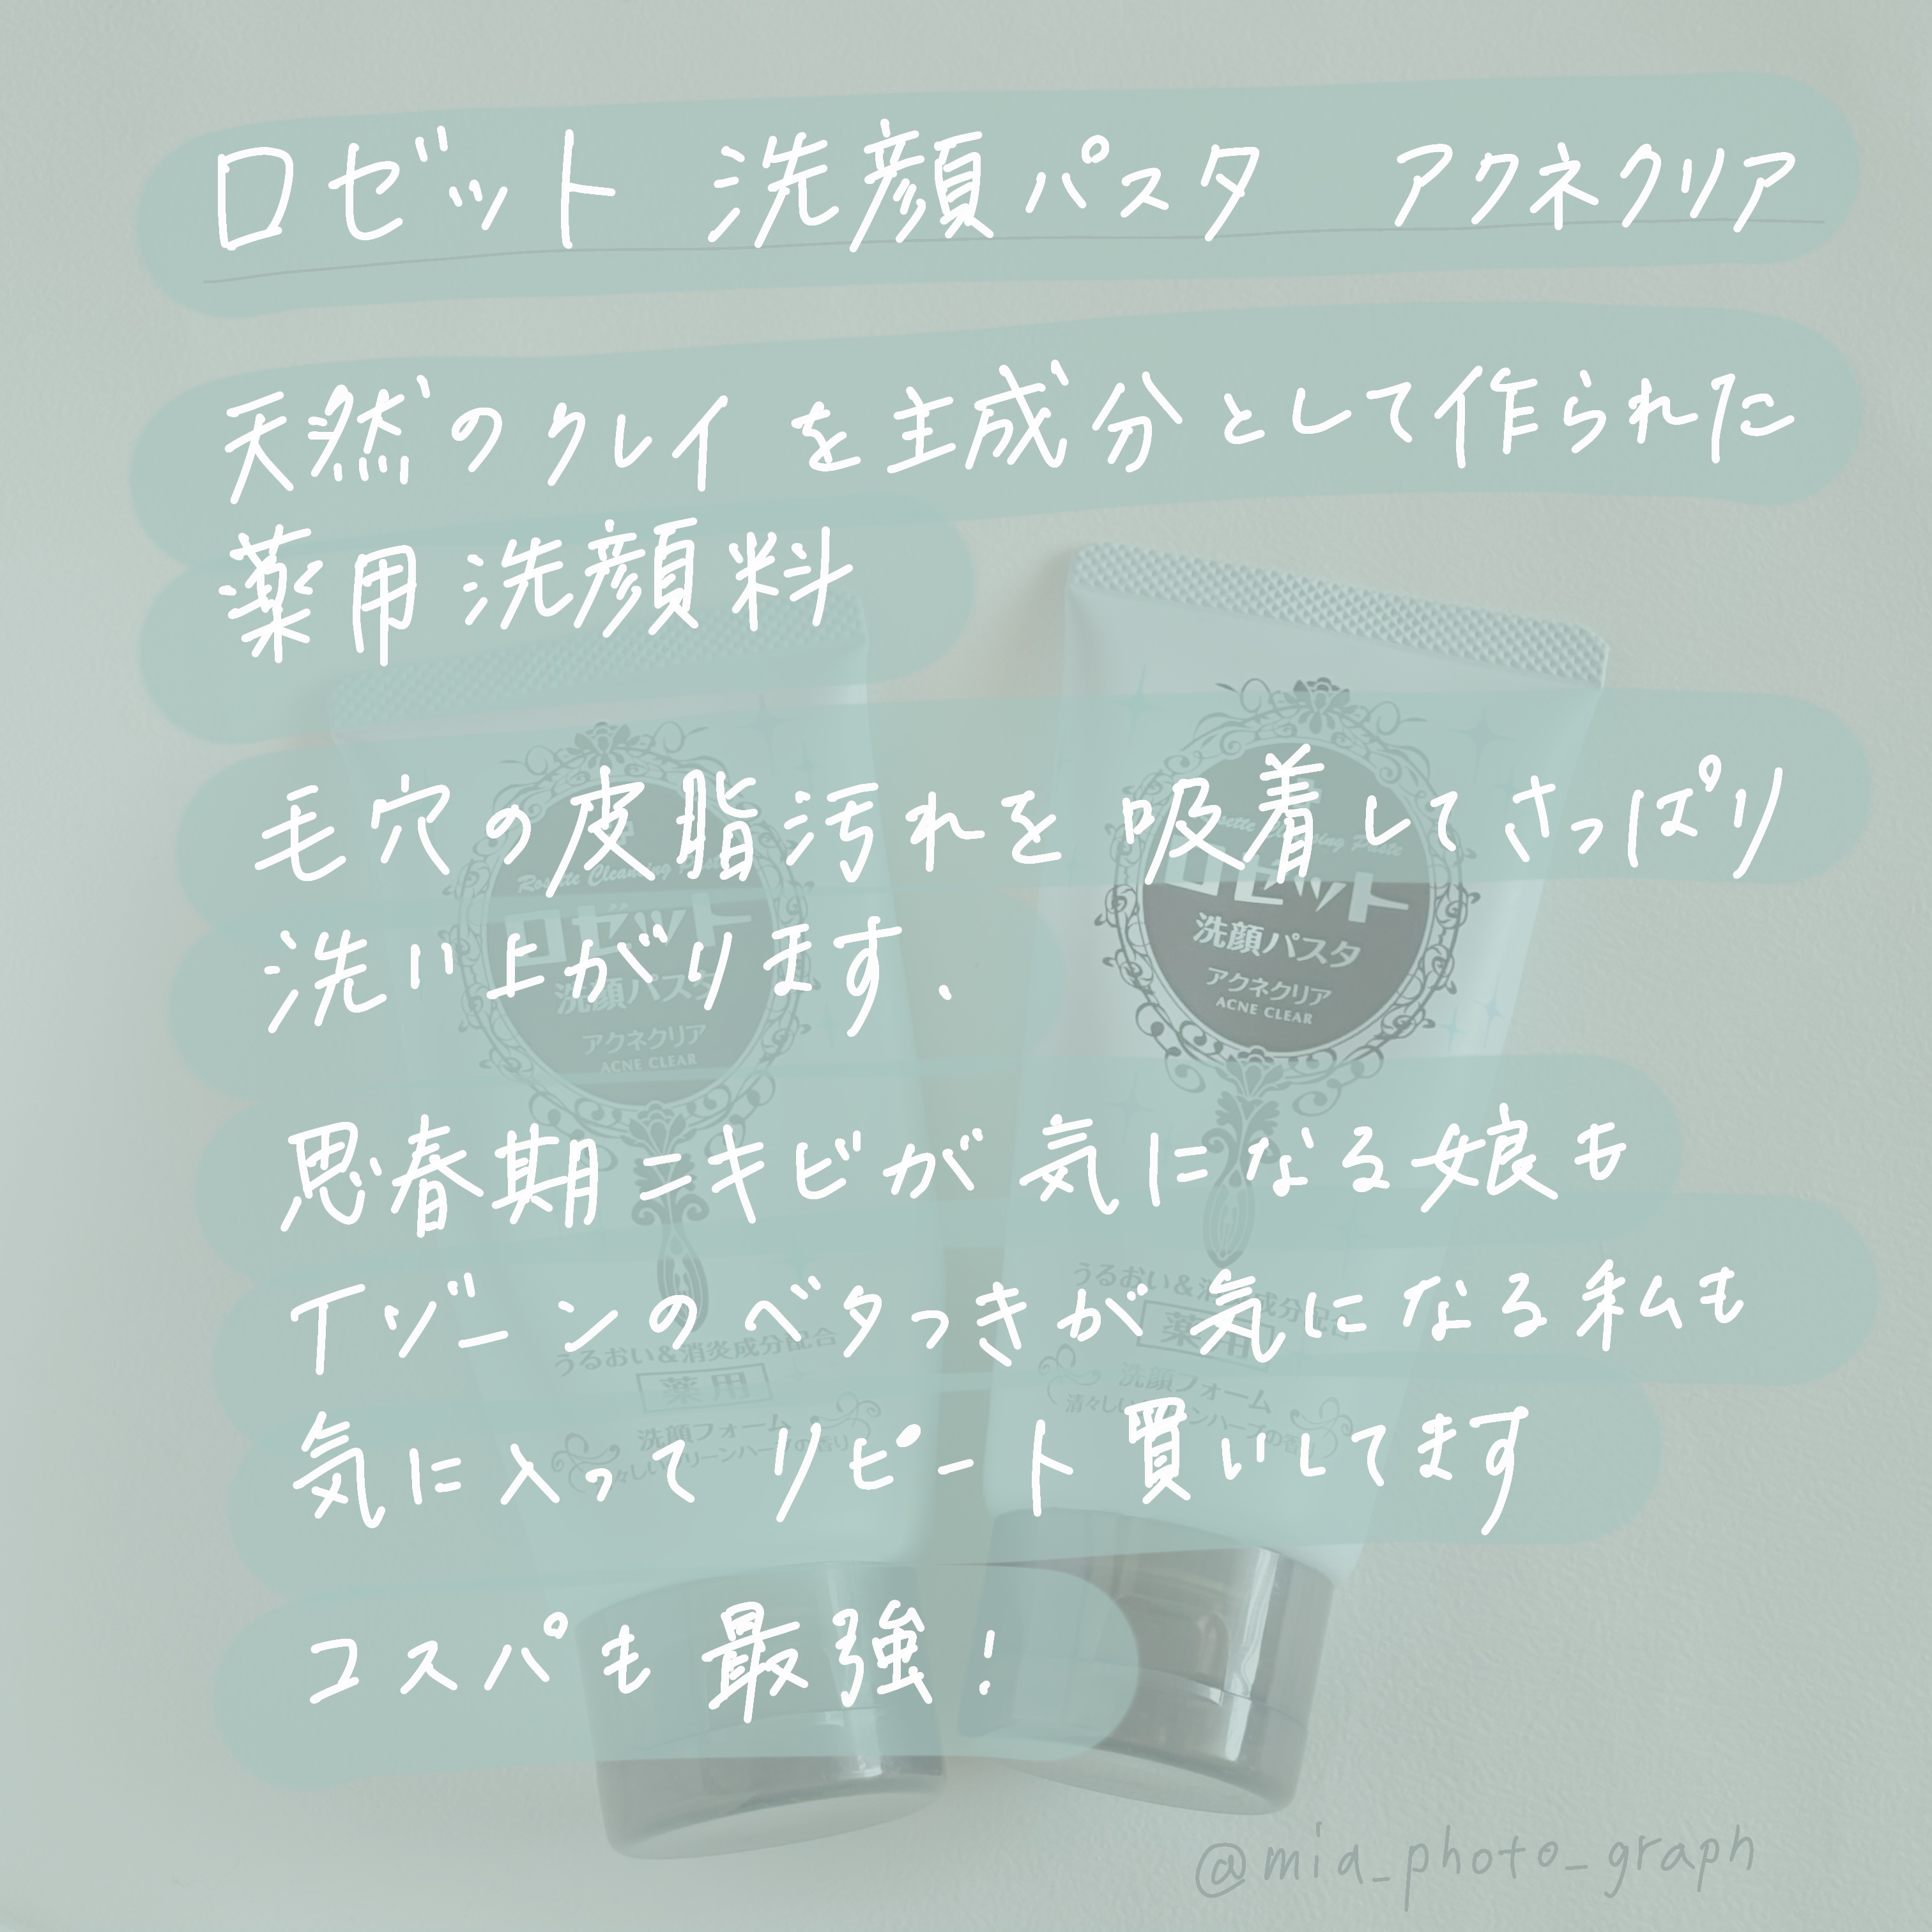 ロゼット 洗顔パスタ アクネクリア
天然のクレイを主成分として作られた
薬用洗顔料
毛穴の皮脂汚れを吸着してさっぱり
洗い上がります.
思春期ニキビが気になる娘も
Tゾーンのベタつきが気になる私も
気に入ってリピート買いしてます
コスパも最強!
Rosette Cleansing Paste
ロゼット
洗顔パスタ
アクネクリア
ACNE CLEAR
うるおい&消炎成分配合
薬用
洗顔フォーム
清々しいグリーンハーブの香り
Rosette Cleansing Paste
ロゼット
洗顔パスタ
アクネクリア
ACNE CLEAR
うるおい&消炎成分配合
薬用
洗顔フォーム
清々しいグリーンハーブの香り
@mid_photo_graph